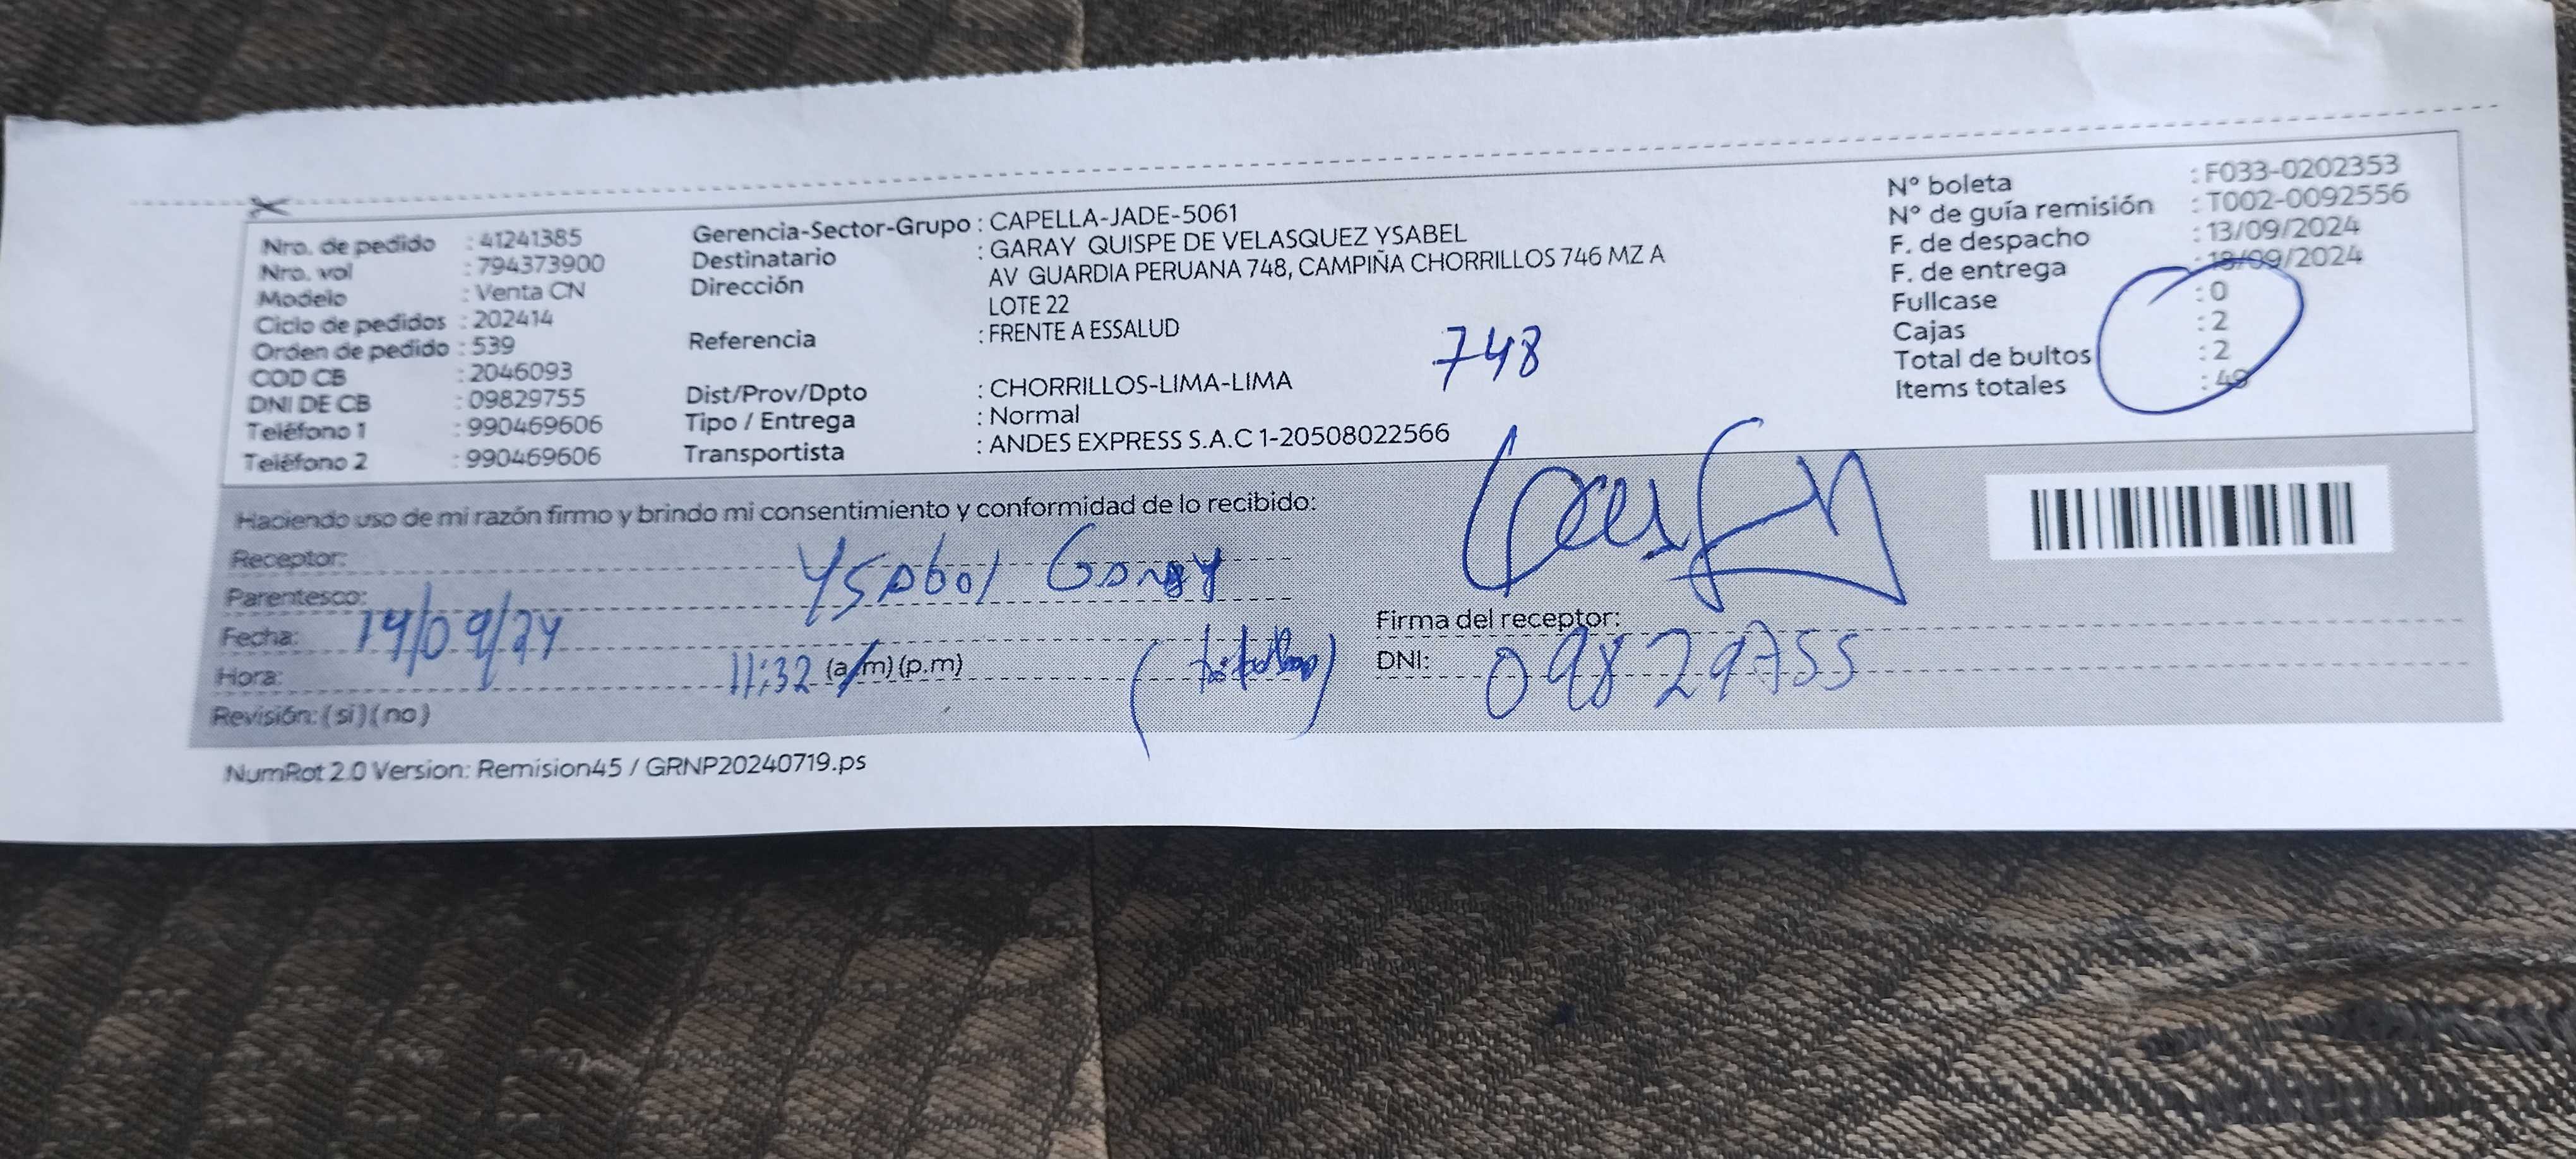 Nro. de pedido : 41241385
Nro. vol : 794373900
Modelo : Venta CN
Ciclo de pedidos : 202414
Orden de pedido : 539
COD CB : 2046093
DNI DE CB : 09829755
Teléfono 1 : 990469606
Teléfono 2 : 990469606
Gerencia-Sector-Grupo : CAPELLA-JADE-5061
Destinatario : GARAY QUISPE DE VELASQUEZ YSABEL
Dirección AV GUARDIA PERUANA 748, CAMPIÑA CHORRILLOS 746 MZ A
LOTE 22
Referencia : FRENTE A ESSALUD
748
Dist/Prov/Dpto : CHORRILLOS-LIMA-LIMA
Tipo / Entrega : Normal
Transportista : ANDES EXPRESS S.A.C 1-20508022566
N° boleta : F033-0202353
N° de guía remisión : T002-0092556
F. de despacho : 13/09/2024
F. de entrega : /09/2024
Fullcase : 0
Cajas : 2
Total de bultos : 2
Items totales : 49
Haciendo uso de mi razón firmo y brindo mi consentimiento y conformidad de lo recibido:
Receptor: Ysabel Garay
Parentesco:
Fecha: 14/09/24
Hora: 11:32 (a.m) (p.m)
Revisión: (si) (no)
Firma del receptor:
DNI: 09829755
NumRot 2.0 Version: Remision45 / GRNP20240719.ps